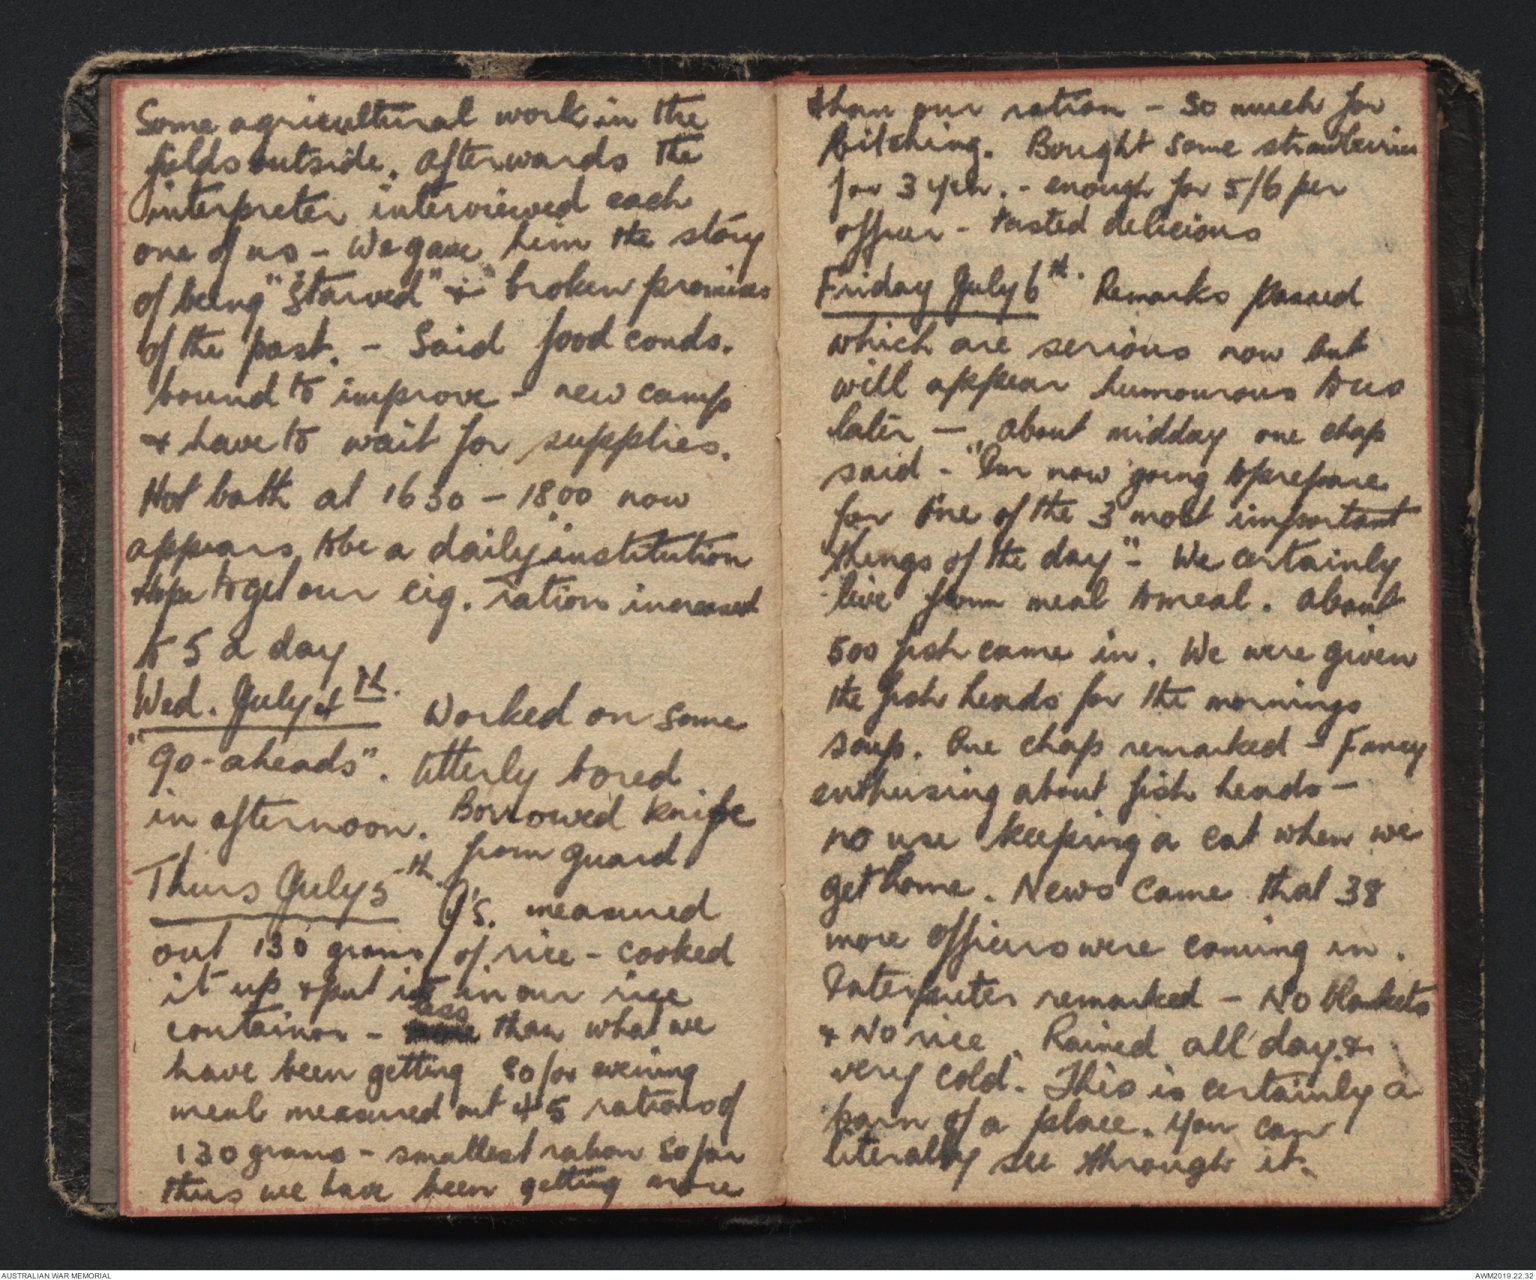 Some agricultural work in the
fields outside. Afterwards the
interpreter interviewed each
one of us - We gave him the story
of being "starved" & "broken promises
of the past. - Said food conds.
bound to improve - new camp
& have to wait for supplies.
Hot bath at 1630 - 1800 now
appears to be a daily "institution
Hope to get our cig. ration increased
to 5 a day
Wed. July 4th. Worked on some
"go-aheads". Utterly bored
in afternoon. Borrowed knife
from guard.
Thurs July 5th. Q's. measured
out 130 grams of rice - cooked
it up & put it in our rice
container - less than what we
have been getting So for evening
meal measured out 45 rations of
130 grams - smallest ration so far
thus we have been getting more
than our ration - so much for
bitching. Bought some strawberries
for 3 yen. - enough for 5/6 per
officer - tasted delicious
Friday July 6th. Remarks passed
which are serious now but
will appear humourous to us
later - about midday one chap
said - "I'm now going to prepare
for one of the 3 most important
things of the day" - We certainly
live from meal to meal. About
500 fish came in. We were given
the fish heads for the mornings
soup. One chap remarked - Fancy
enthusing about fish heads -
no use keeping a cat when we
get home. News came that 38
more officers were coming in.
Interpreter remarked - No blankets
& No rice. Rained all day &
very cold. This is certainly a
barn of a place. You can
literally see through it.
AUSTRALIAN WAR MEMORIAL
AWM2019.22.32